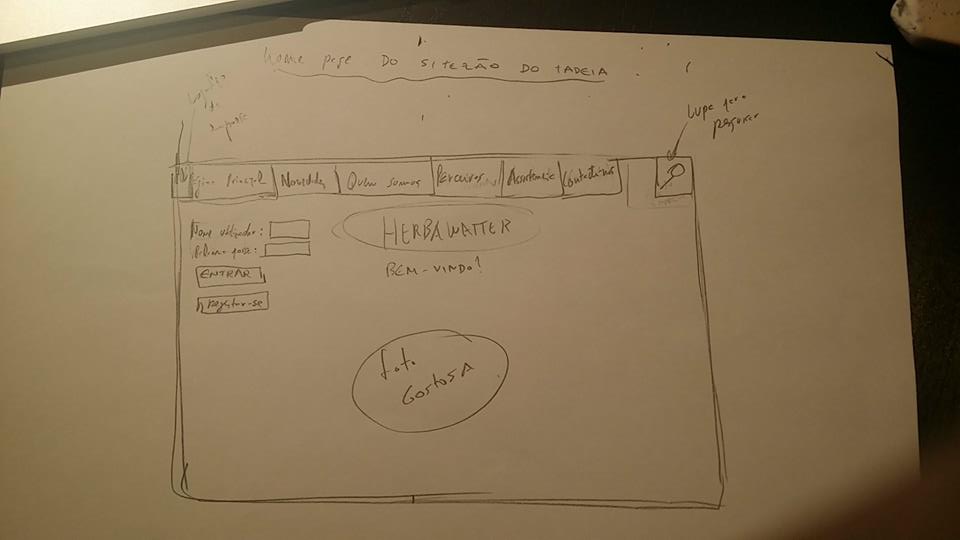 Home page DO SITEZÃO DO TADEIA.
Logotipo
da
empresa
Lupa para
pesquisar
Página Principal
Novidades
Quem somos
Parceiros
Assistência
Contacte-nos
Nome utilizador:
Palavra passe:
ENTRAR
Registar-se
HERBAWATTER
BEM-VINDO!
foto
GOSTOSA